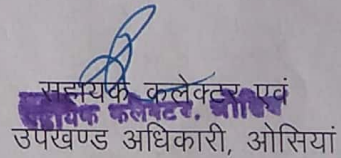 सहायक कलेक्टर एवं
सहायक कलेक्टर, ओसियां
उपखण्ड अधिकारी, ओसियां